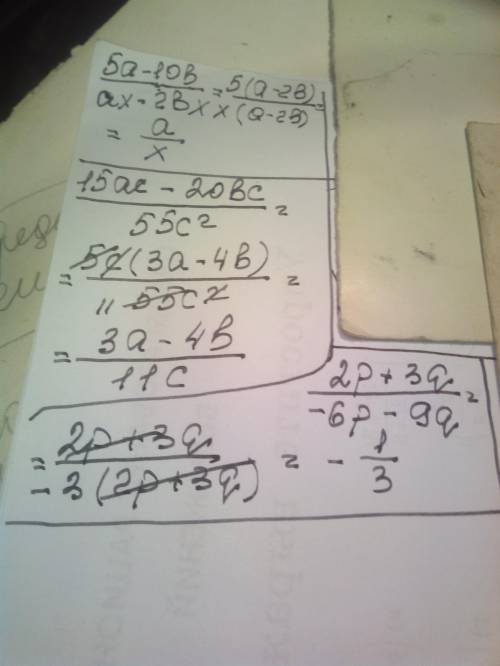 5a-10b/ax-2bx = 5(a-2b)/x(a-2b) =
= a/x
15ac - 20bc/55c² =
= 5c(3a-4b)/11 55c² =
= 3a - 4b/11c
2p + 3q/-6p - 9q =
= 2p+3q/-3(2p+3q) = - 1/3